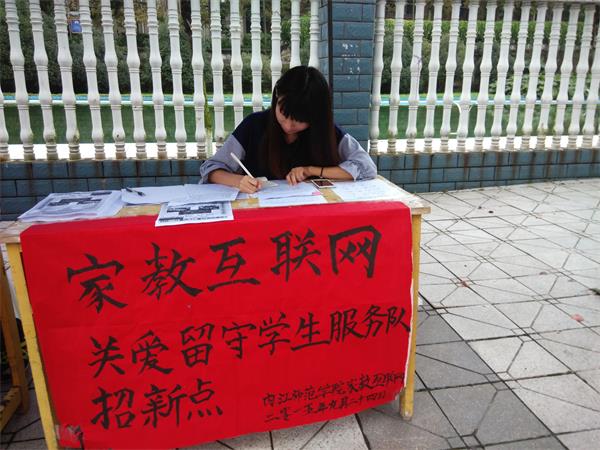 家教互联网
关爱留守学生服务队
招新点
内江师范学院家教互联网
二零一五年九月二十四日